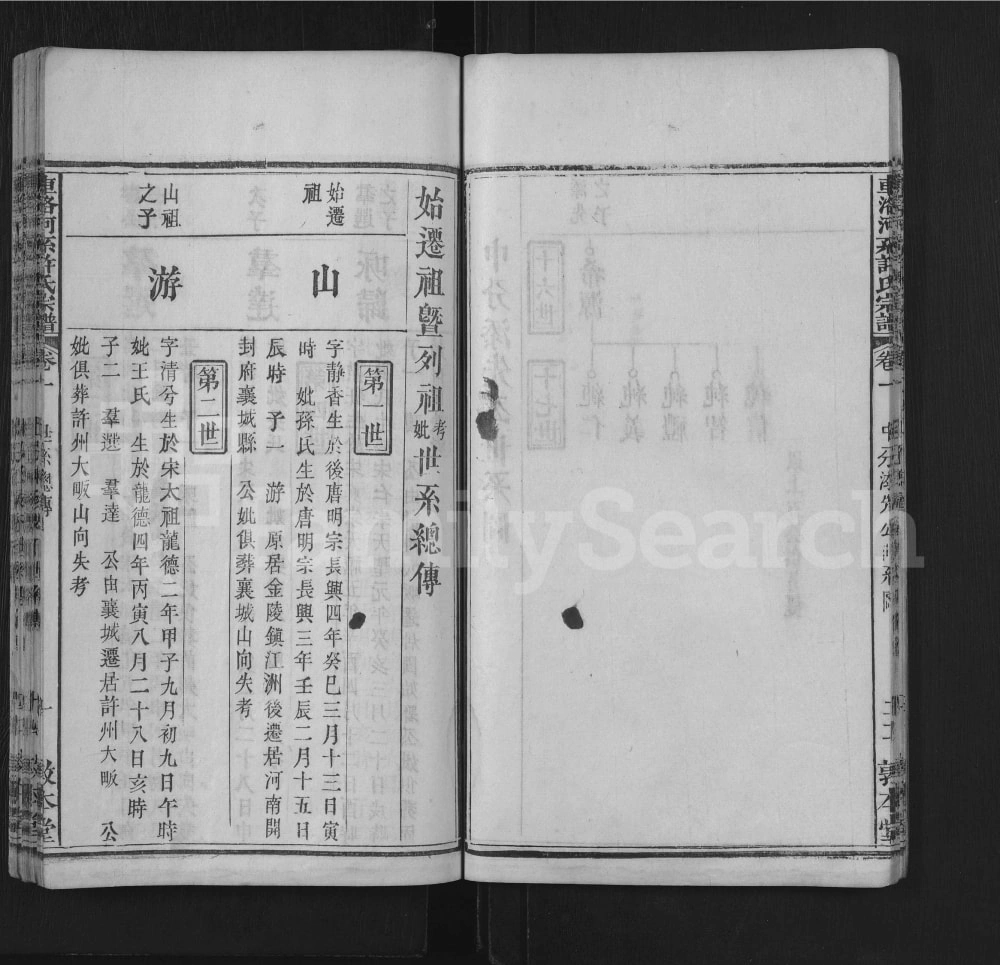 始遷祖暨列祖考妣世系總傳
始遷
祖
山
第一世
字靜香生於後唐明宗長興四年癸巳三月十三日寅
時 妣孫氏生於唐明宗長興三年壬辰二月十五日
辰時 子一 游 原居金陵鎮江洲後遷居河南開
封府襄城縣 公妣俱葬襄城山向失考
山祖
之子
游
第二世
字清兮生於宋太祖龍德二年甲子九月初九日午時
妣王氏 生於龍德四年丙寅八月二十八日亥時
子二 羣選 羣達 公由襄城遷居許州大畈 公
妣俱葬許州大畈山向失考
重洛河系許氏宗譜 卷一 世系總傳 一 敦本堂
重洛河系許氏宗譜 卷一
敦本堂
FamilySearch